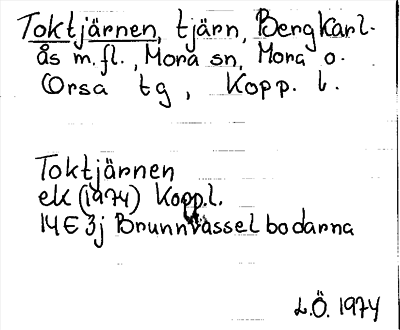 Toktjärnen, tjärn, Bergkarl-
ås m.fl., Mora sn, Mora o.
Orsa tg, Kopp. l.
Toktjärnen
ek (1974) Kopp.l.
14E 3j Brunnvasselbodarna
L.Ö. 1974